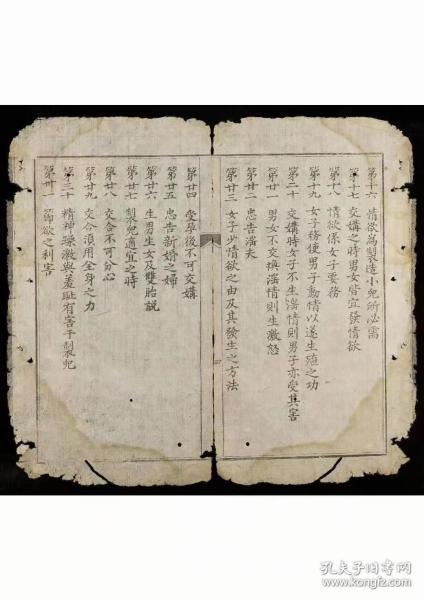 第十六　情欲為製造小兒所必需
第十七　交媾之時男女皆宜發情欲
第十八　情欲係女子要務
第十九　女子務使男子動情以遂生殖之功
第二十　交媾時女子不生滛情則男子亦受其害
第廿一　男女不交換滛情則生激怒
第廿二　忠告滛夫
第廿三　女子少情欲之由及其發生之方法
第廿四　受孕後不可交媾
第廿五　忠告新婚之婦
第廿六　生男生女及雙胎說
第廿七　製兒適宜之時
第廿八　交合不可分心
第廿九　交合須用全身之力
第三十　精神躁激與羞耻有害于製兒
第卅一　節欲之利害
孔夫子旧书网
kongfz.com